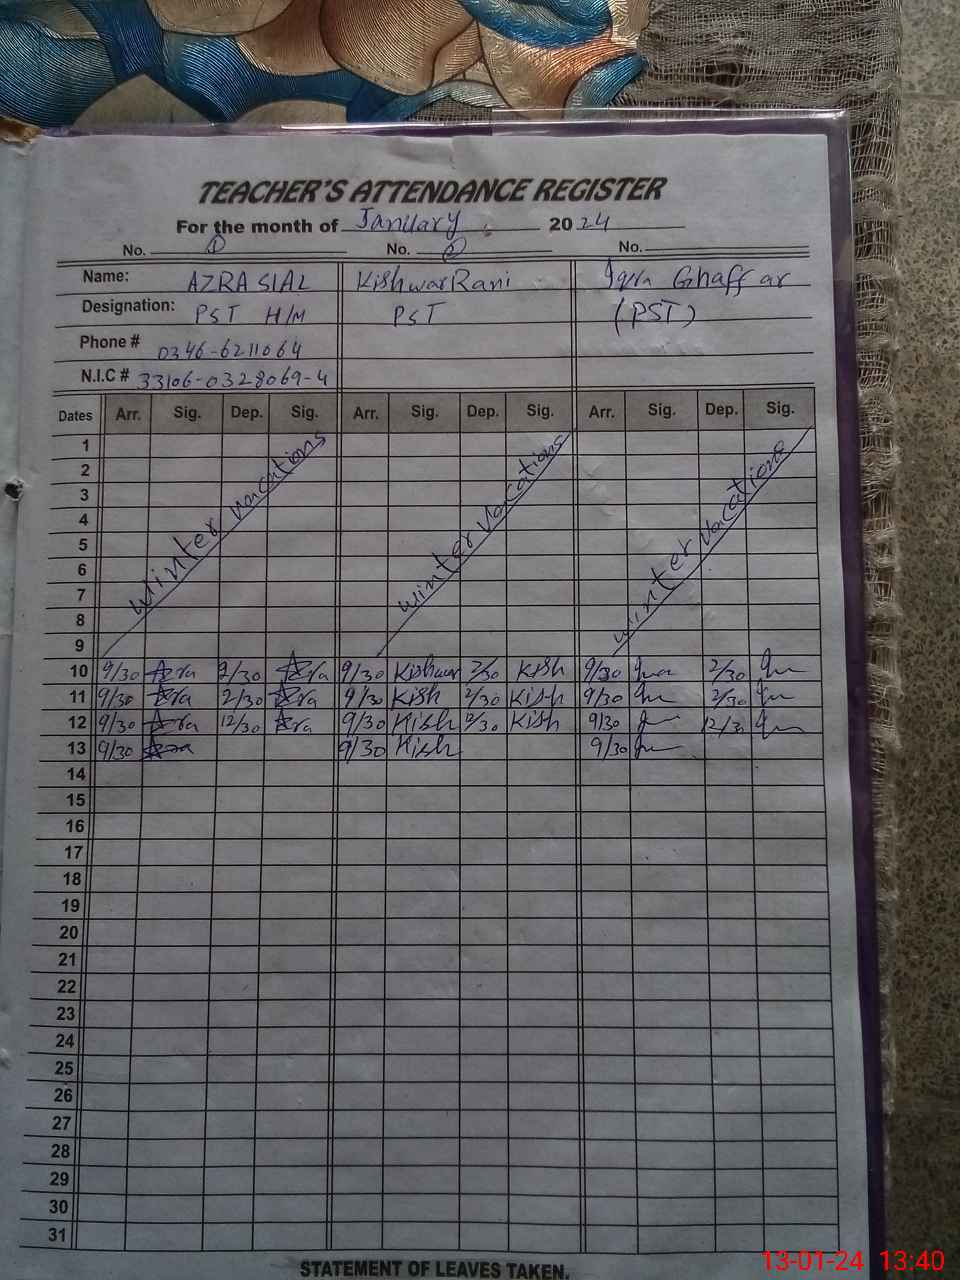 TEACHER'S ATTENDANCE REGISTER
For the month of January 2024
No. 1 No. 2 No.
Name: AZRA SIAL Kishwar Rani Iqra Ghaffar
Designation: PST H/M PST (PST)
Phone # 0346-6211064
N.I.C # 33106-0328069-4
Dates Arr. Sig. Dep. Sig. Arr. Sig. Dep. Sig. Arr. Sig. Dep. Sig.
1
2
3
4
5
6
7
8
9
winter vacations winter vacations winter vacations
10 9/30 Azra 2/30 Azra 9/30 Kishwar 2/30 Kish 9/30 2/30
11 9/30 Azra 2/30 Azra 9/30 Kish 2/30 Kish 9/30 2/30
12 9/30 Azra 12/30 Azra 9/30 Kish 12/30 Kish 9/30 12/30
13 9/30 Azra 9/30 Kish 9/30
14
15
16
17
18
19
20
21
22
23
24
25
26
27
28
29
30
31
STATEMENT OF LEAVES TAKEN.
13-01-24 13:40